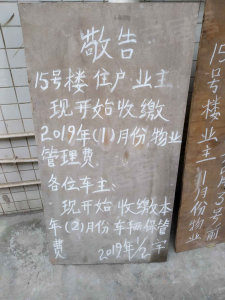 敬告
15号楼住户业主
现开始收缴
2019年(1)月份物业
管理费.
各位车主:
现开始收缴本
年(2)月份车辆保管
费 2019年1/2字
15号楼业主
1月份物